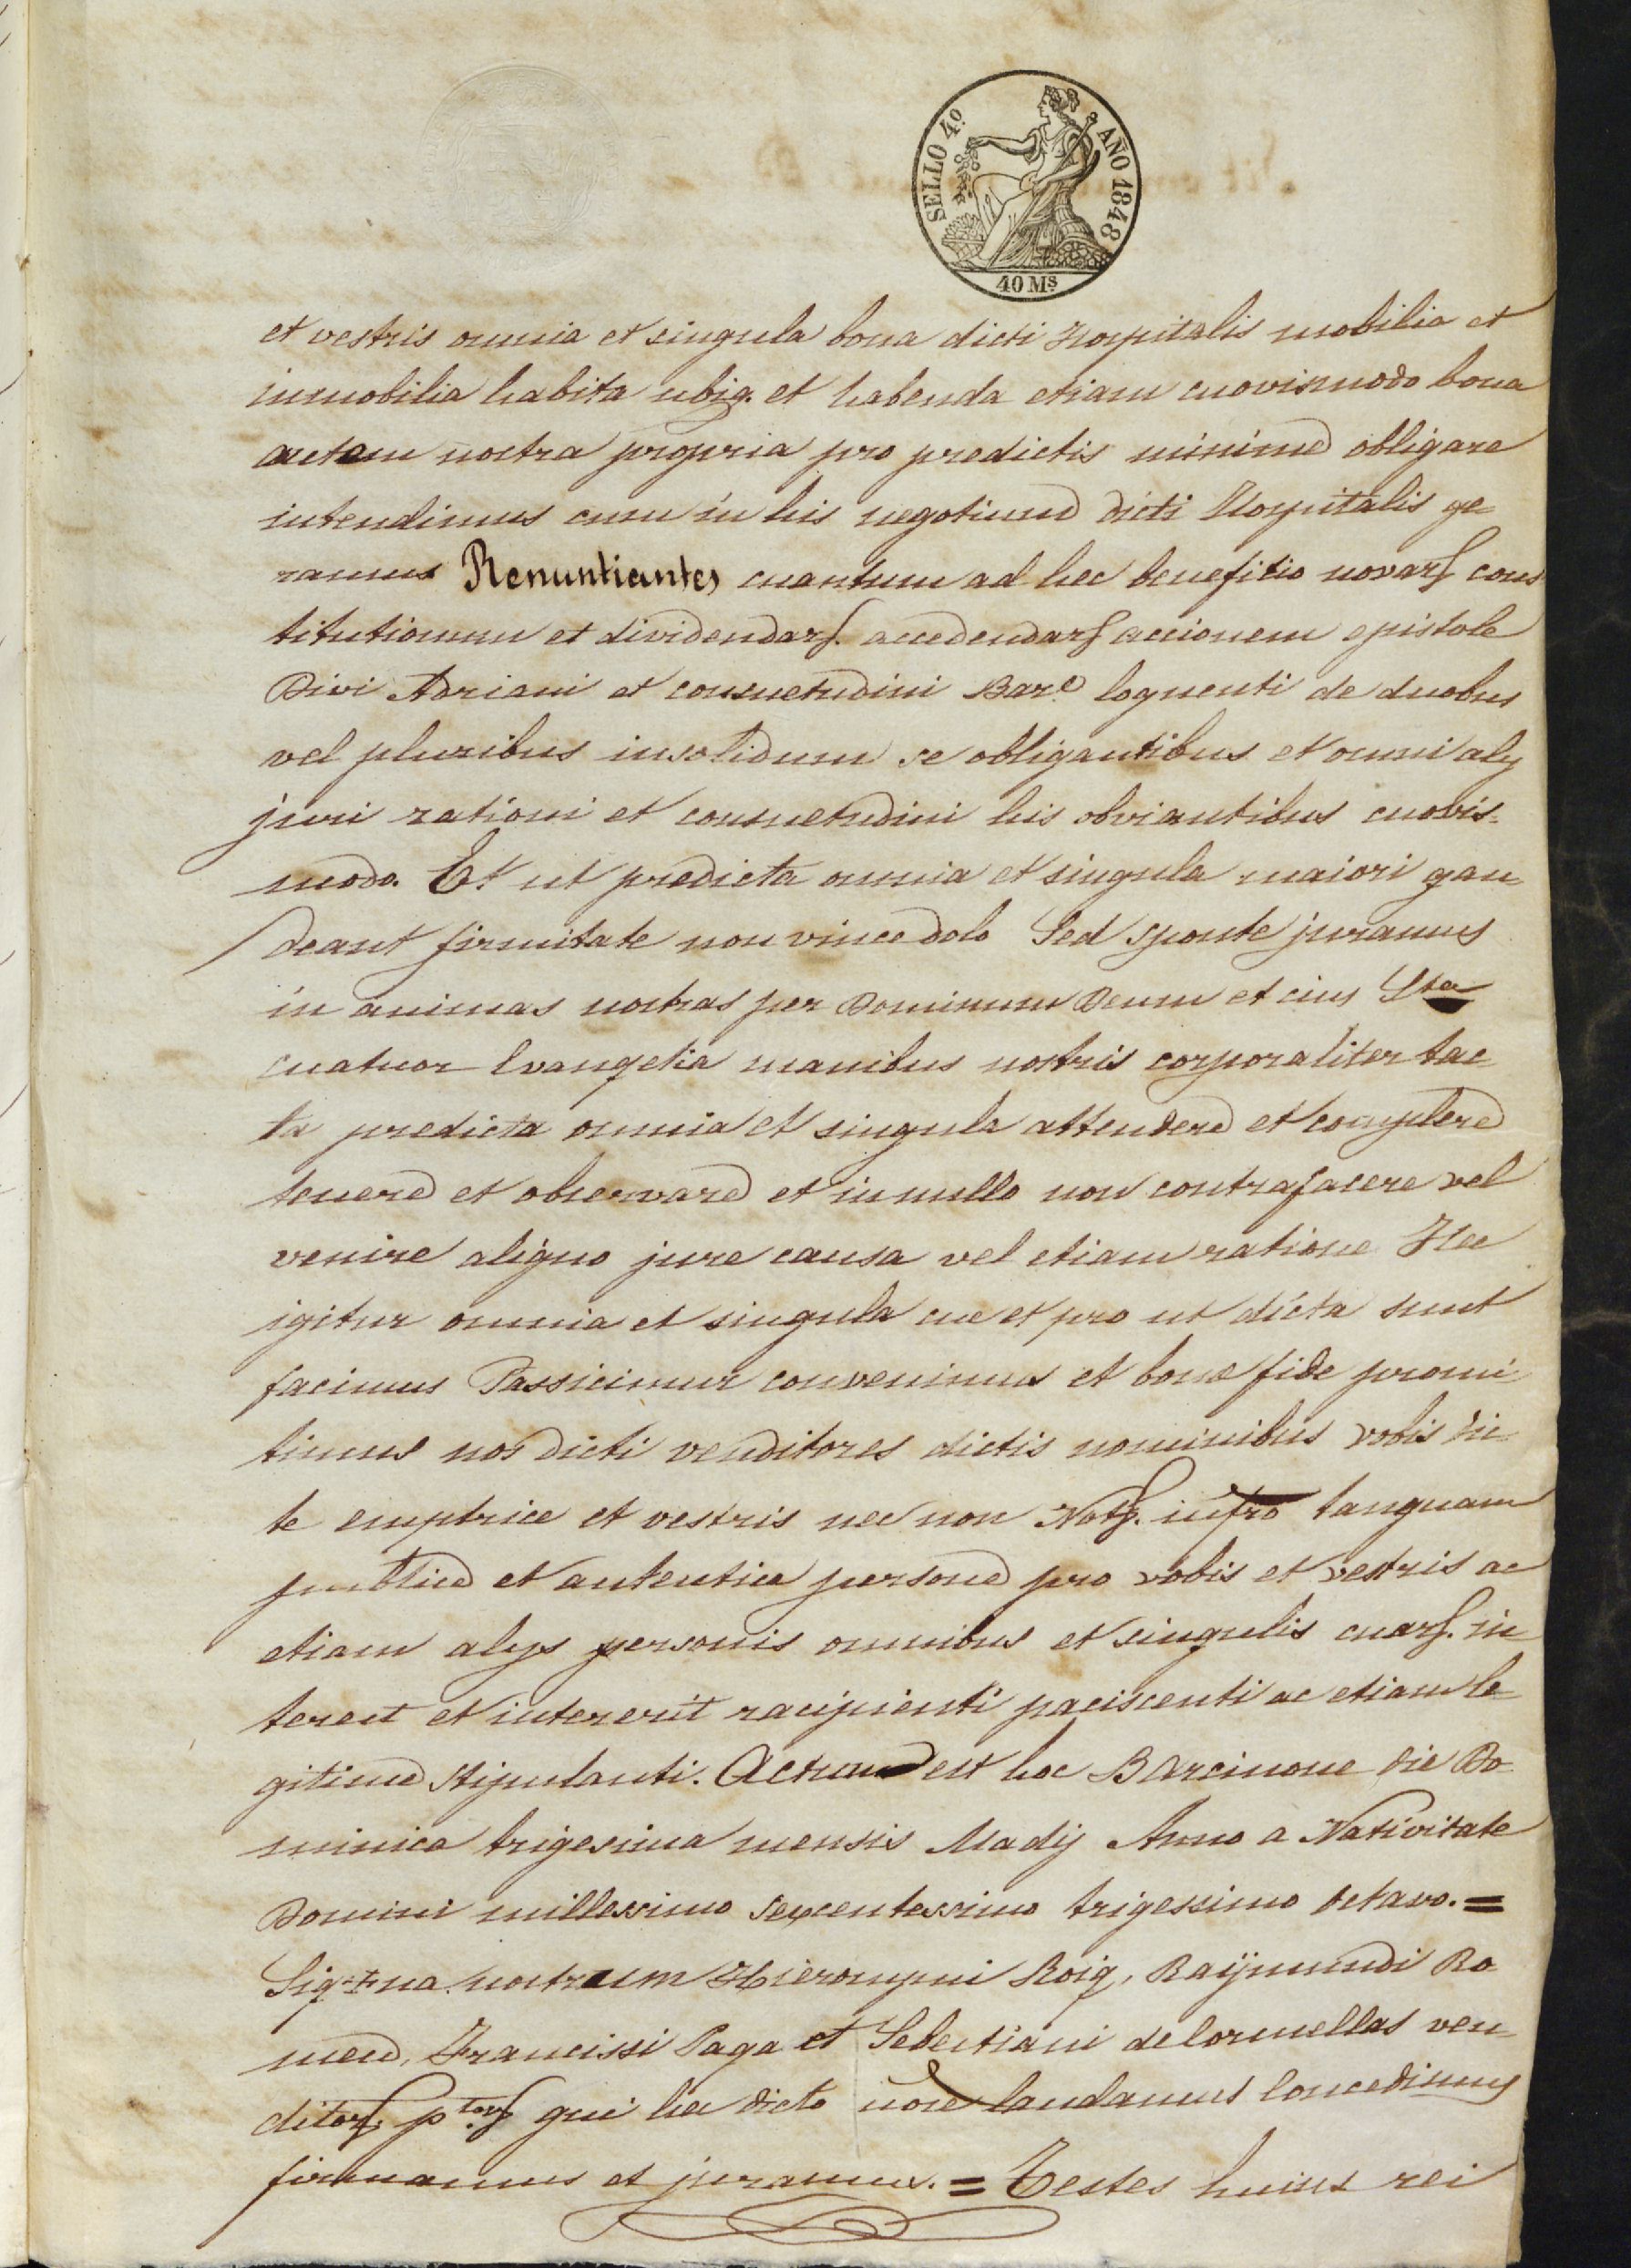 SELLO 4º
AÑO 1848
40 Ms
et vestris omnia et singula bona dicti Hospitalis mobilia et
inmobilia habita ubiq. et habenda etiam cuovismodo bona
autem nostra propria pro predictis minime obligare
intendimus cum in his negotium dicti Hospitalis ge
ramus Renuntiantes cuantum ad hec benefitio novarſ cons
titutionum et dividendarſ. accedendarſ accionem epistole
Divi Adriani et consuetudini Bar.e loquenti de duobus
vel pluribus insolidum se obligantibus et omni aly
juri rationi et consuetudini his obviantibus cuovis-
modo. Et ut predicta omnia et singula maiori gau
deant firmitate non vince dolo Sed sponte juramus
in animas nostras per Dominum Deum et eius Sta
cuatuor Evangelia manibus nostris corporaliter tac
ta predicta omnia et singula attendere et complere
tenere et observare et in nullo non contrafacere vel
venire aliquo jure causa vel etiam ratione Hec
igitur omnia et singula cue et pro ut dicta sunt
facimus Passicimur convenimus et bone fide promi
timus nos dicti venditores dictis nominibus vobis dic
te emptrice et vestris nec non Notſ. infro tanquam
publice et autentica persone pro vobis et vestris ac
etiam alys personis omnibus et singulis cuarſ. in
terest et intererit racipienti paciscenti ac etiam le
gitime stipulanti. Actum est hoc Barcinone die Do
minica trigesima mensis Madij Anno a Nativitate
Domini millessimo sexcentessimo trigessimo octavo. =
Sig+na nostrum Hieronymi Roig, Raijmundi Ro
meu, Francissi Paga et Sebestiani de Cormellas ven
ditorſ ptorſ qui hec dicto noie laudamus Concedimus
firmamus et juramus. = Testes huius rei